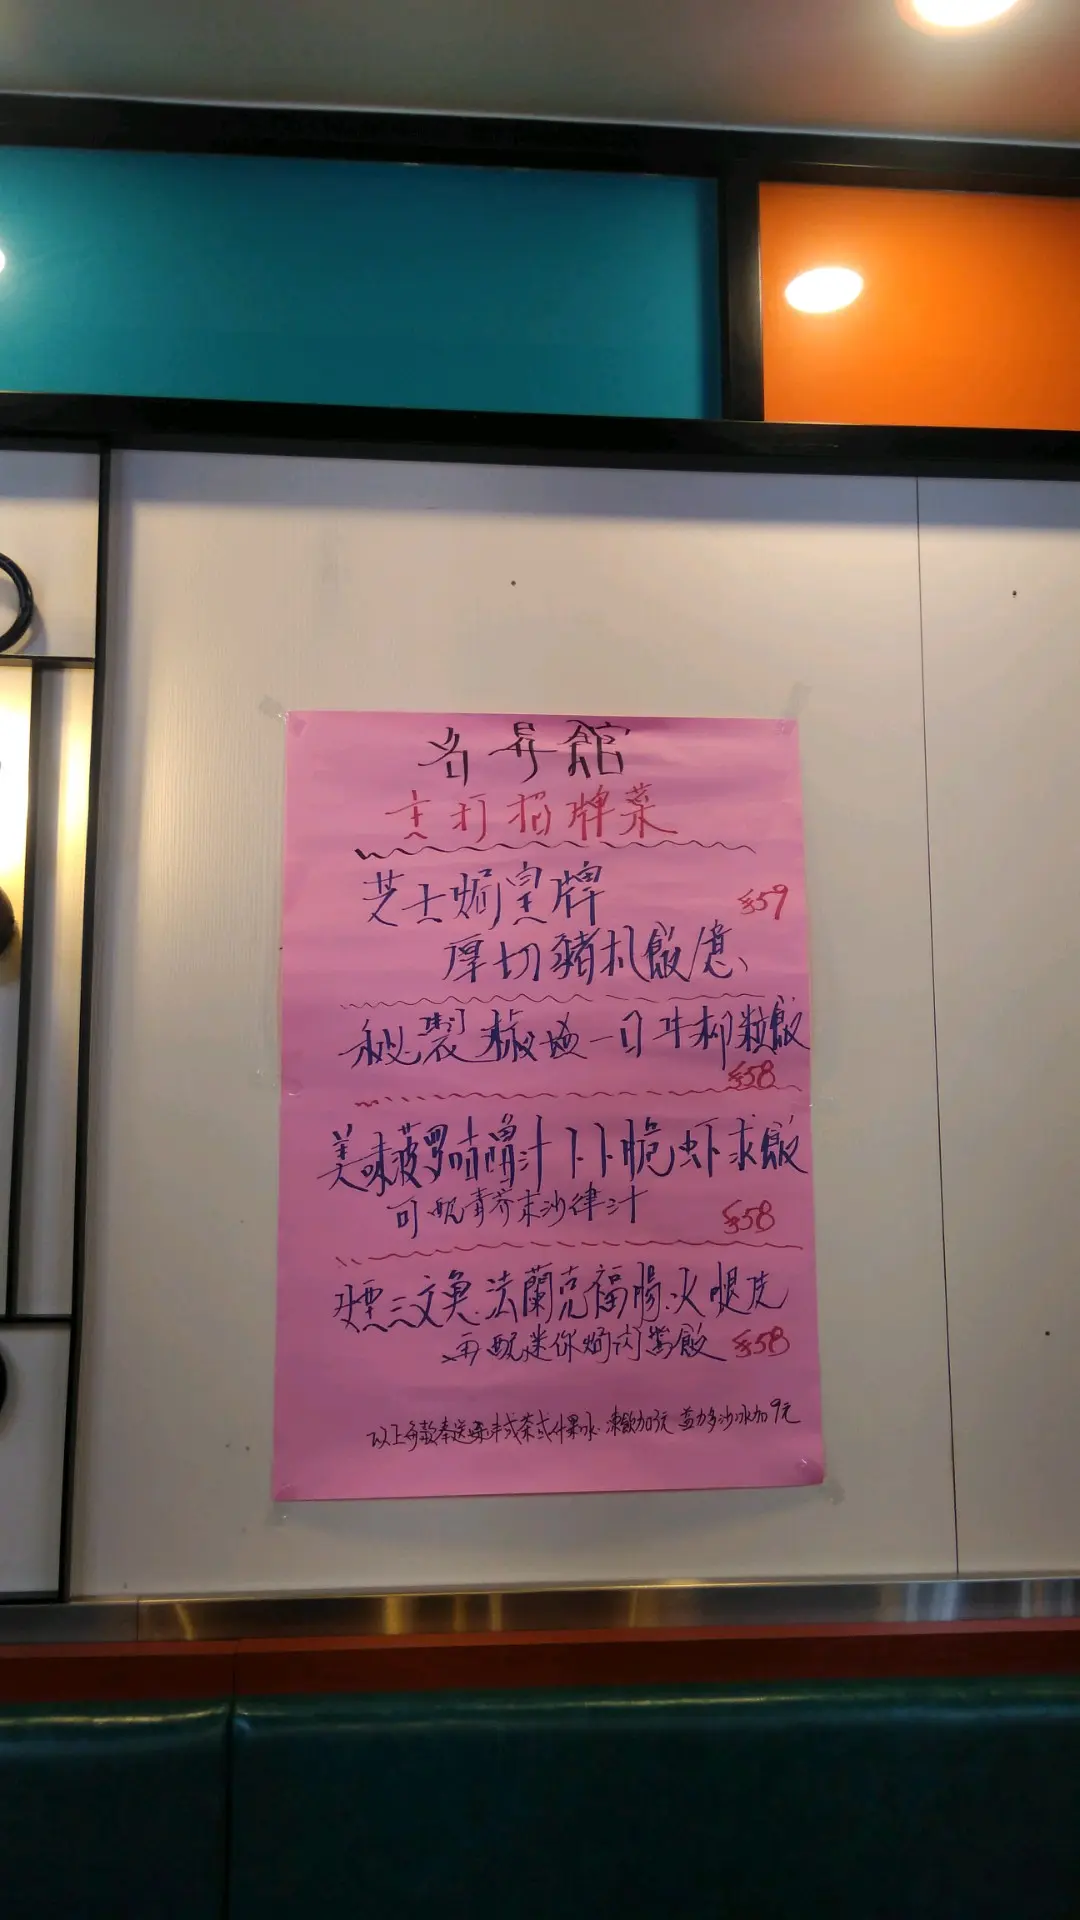 各界館
主打招牌菜
芝士焗皇牌
$59
厚切豬扒飯/意
秘製椒鹽一口牛柳粒飯
$58
美味菠蘿咕嚕汁卜卜脆虾求飯
可配青芥末沙律汁
$58
煙三文魚.法蘭克福腸.火腿皮
再配迷你焗肉醬飯
$58
以上各款奉送 茶或什果冰.凍飲加3元 益力多沙冰加9元